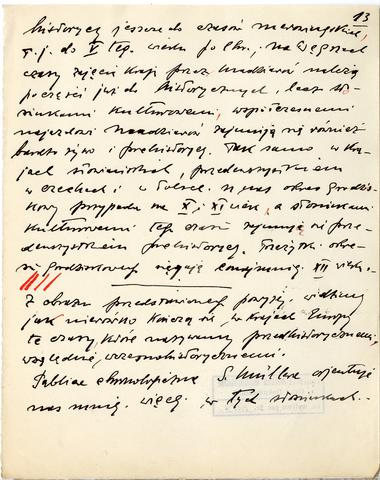 13
historycy jeszcze do czasów merowingskich,
t. j. do V tego wieku po Chr., na Węgrzech
czasy zajęcia kraju przez Madziarów należą
po części już do historycznych, lecz sto-
sunkami kulturowemi, współczesnemi
najazdowi Madziarów zajmują się również
bardzo żywo i prehistorycy. Tak samo w kra-
jach słowiańskich, przedewszystkiem
w Czechach i w Polsce. U nas okres grodzis-
kowy przypada na X i XI wiek, a stosunkami
kulturowemi tego czasu zajmują się prze-
dewszystkiem prehistorycy. Przeżytki okre-
su grodziskowego sięgają conajmniej XII wieku.
Z obrazu przedstawionego powyżej widzimy
jak nierówno kończą się, w krajach Europy
te czasy, które nazywamy przedhistorycznemi,
względnie, wczesnohistorycznemi.
Tablica chronologiczna S. Müllera orjentuje
nas mniej więcej w tych stosunkach.